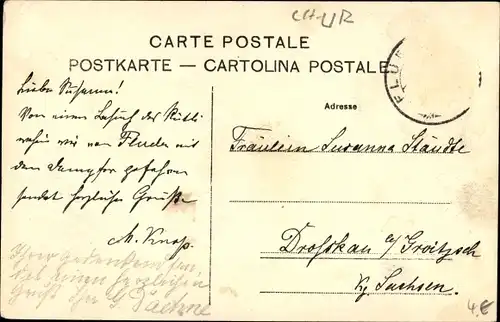 CH-UR
CARTE POSTALE
POSTKARTE — CARTOLINA POSTALE
FLÜ
Adresse
Liebe Susanna!
Von einem Besuch des Rütli
wohin wir von Flüelen mit
dem Dampfer gefahren
sendet herzliche Grüße
M. Knop.
Ihrer gedenkend
einen herzlichen
Gruß
Fräulein Susanna Städtke
Drosskau a/Groitzsch
Kg. Sachsen.
4,€